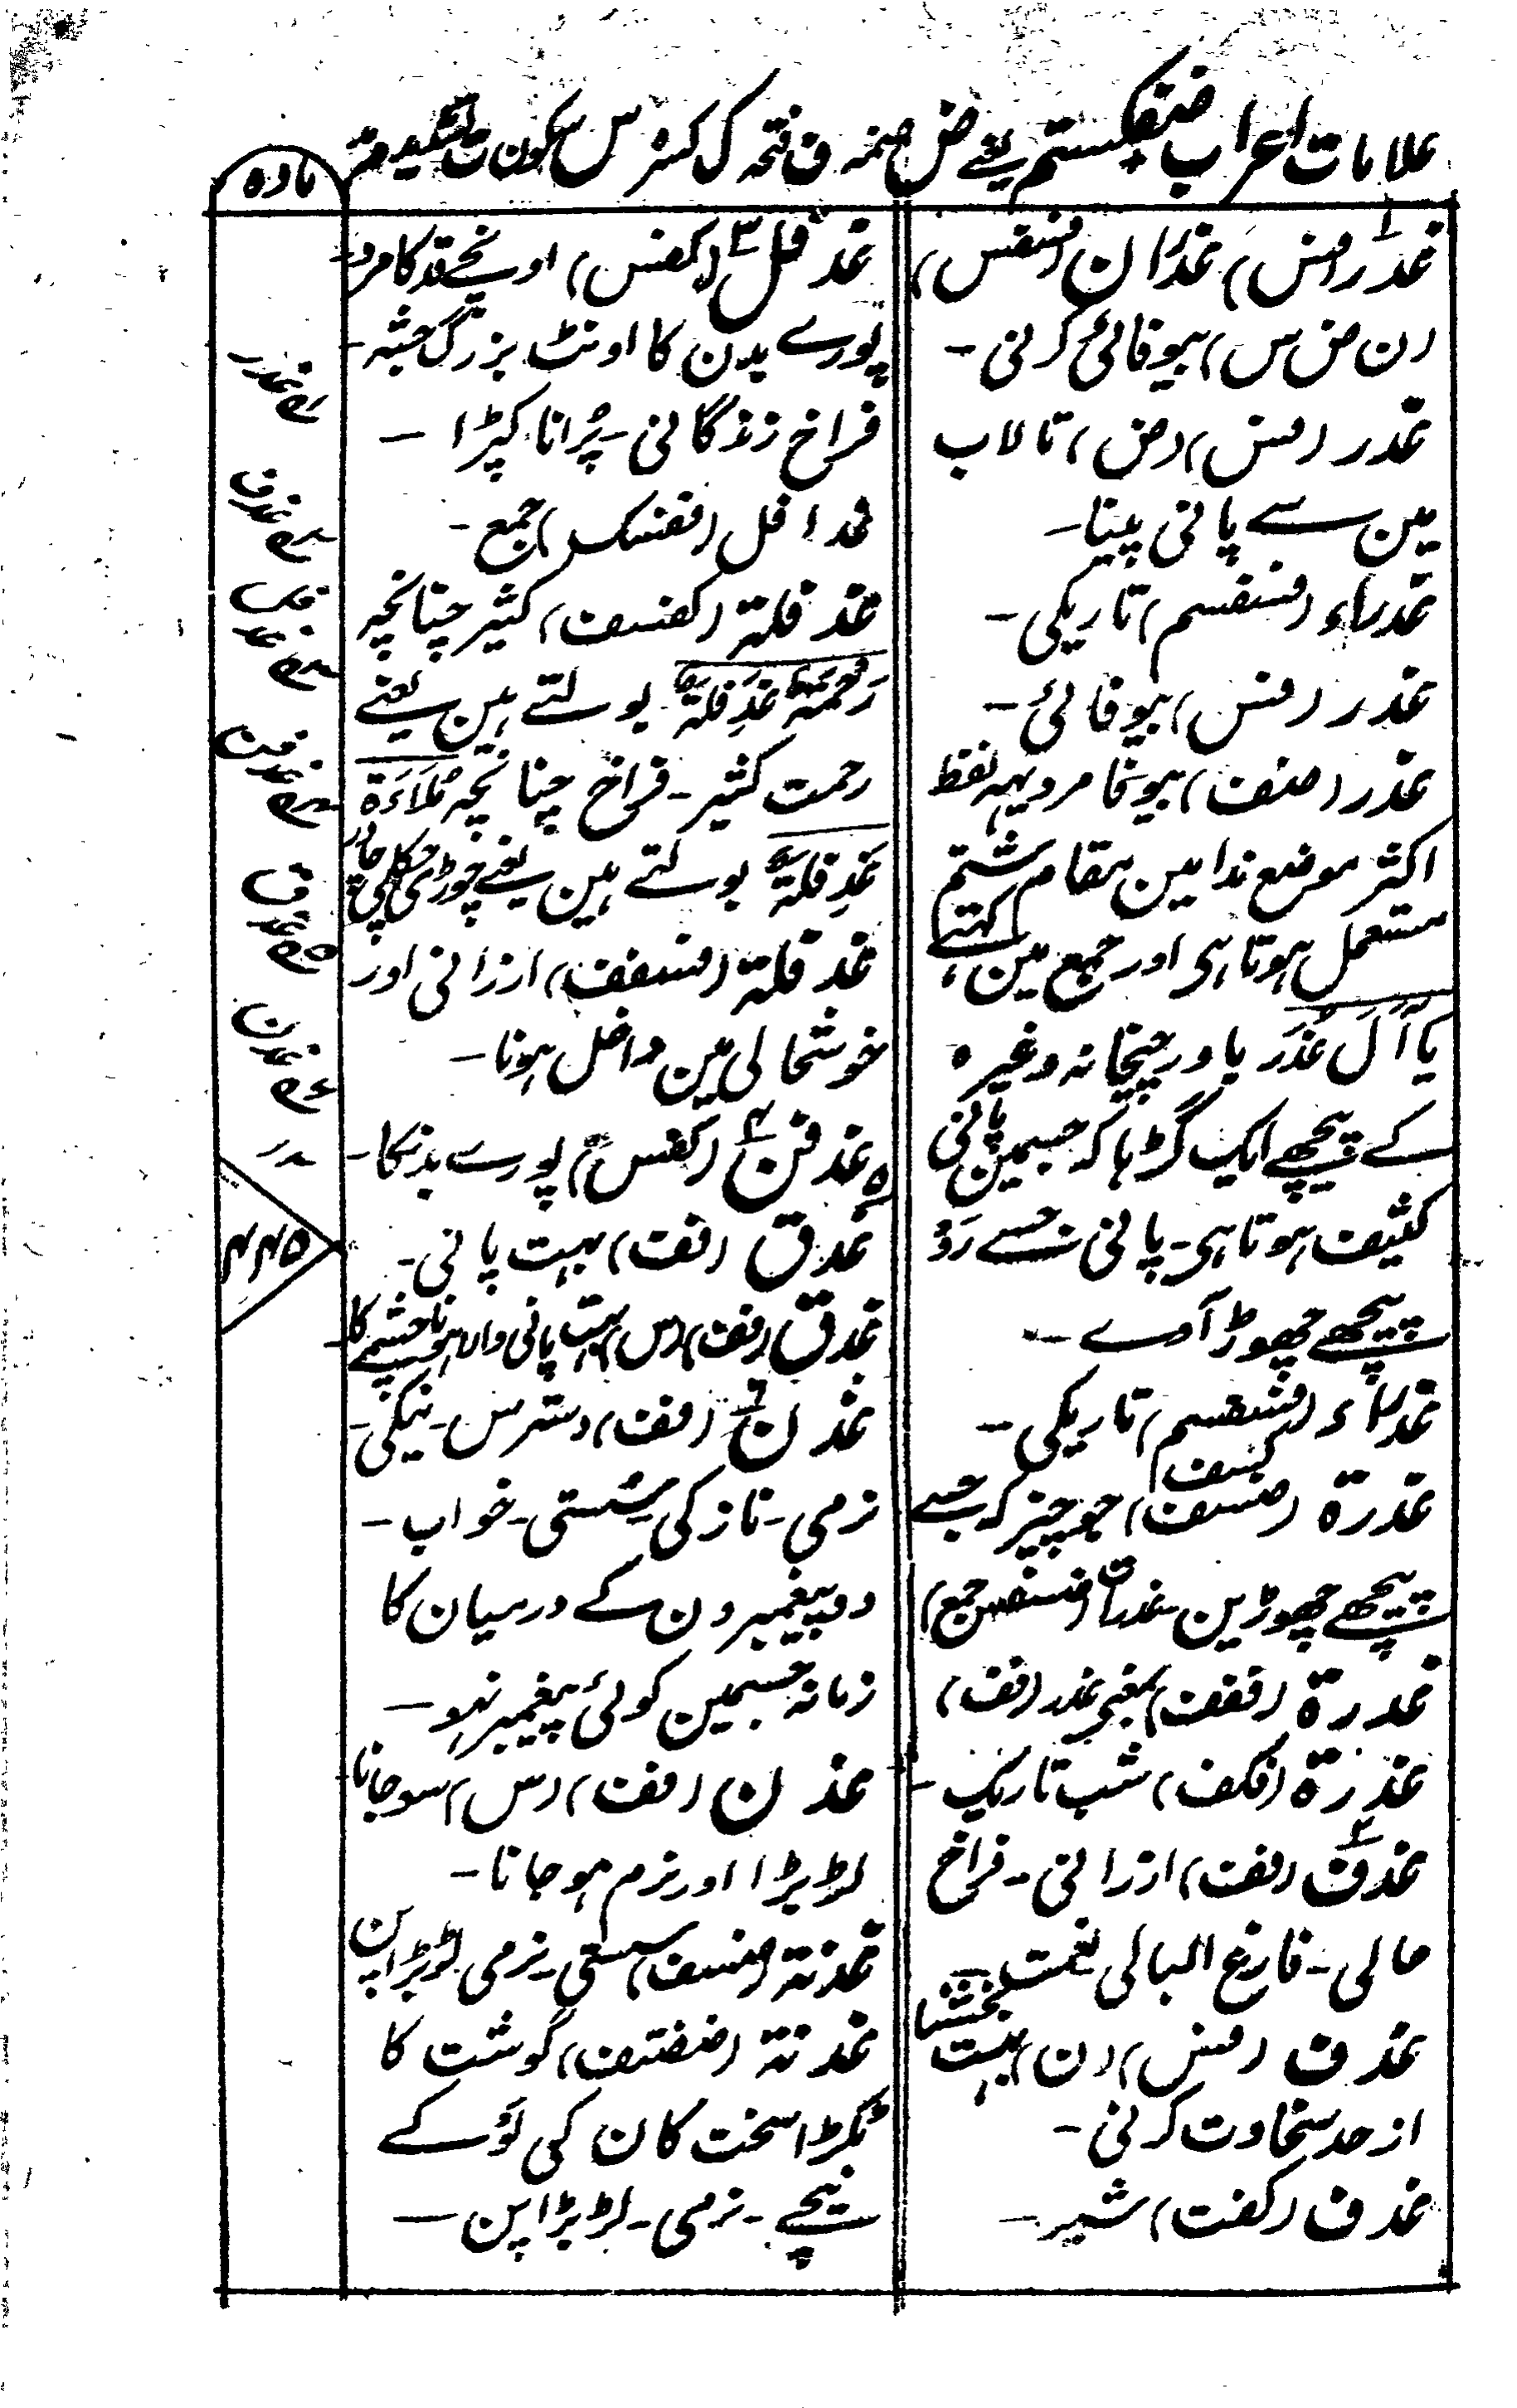 علامات اعراب ضفکستم یعنے ض ضمہ ف فتحہ ک کسرہ س سکون ت تشدید م مد
مادہ
غدر (فس) غدران (فسفس)
(ن ض س) بیوفائی کرنی ۔
غدر (فس) (ض) تالاب
مین سے پانی پینا۔
غدراء (فسفسم) تاریکی ۔
غدر (فس) بیوفائی ۔
غدر (ضف) بیوفا مرد یہہ لفظ
اکثر موضع ندا مین مقام شتم
مستعمل ہوتا ہی اور جمع مین کہتے
یا آل غُدَر باورچیخانہ وغیرہ
کے پیچھے ایک گڑہا کہ جسمین پانی
کثیف ہوتا ہی۔ پانی جسے رَو
پیچھے چھوڑ آوے ۔
غدراء (فسفسم) تاریکی ۔
غدرة (ضسف) کسف جو چیز کہ جسے
پیچھے چھوڑین غدرات (ضسفس جمع)
غدرة (ففف) بمعنی غدر (فف)
غدرة (فکف) شب تاریک ۔
غدف (فف) ارزانی ۔ فراخ
حالی ۔ فارغ البالی نعمت
غدف (فس) (ن) بہت بخشنا
از حد سخاوت کرنی ۔
غدف (کفت) شیر ۔
غدفل ۳ (کفس) اونچے قد کا مرد۔
پورے بدن کا اونٹ بزرگ جثہ ۔
فراخ زندگانی ۔ پُرانا کپڑا ۔
غدافل (ففسک) جمع ۔
غدفلة (کفسف) کثیر چنانچہ
رَحْمَةٌ غِدَفْلَةٌ بولتے ہین یعنے
رحمت کثیر ۔ فراخ چنانچہ مُلَاءَةٌ
غِدَفْلَةٌ بولتے ہین یعنے چوڑی چکلی چادر
غدفلة (فسفف) ارزانی اور
خوشحالی مین داخل ہونا ۔
غدفن ۴ (کفس) پورے بدنکا ۔
۵ غدق (فف) بہت پانی ۔
غدق (فف) (س) بہت پانی والا ہونا چشمے کا
غدن ۶ (فف) دسترس ۔ نیکی ۔
نرمی ۔ نازکی ۔ سُستی ۔ خواب ۔
دو پیغمبرون کے درمیان کا
زمانہ جسمین کوئی پیغمبر نہو ۔
غدن (فف) (س) سو جانا
لڑبڑا اور نرم ہو جانا ۔
غدنة (ضسف) سستی ۔ نرمی لڑبڑاپن
غدنة (ضضتف) گوشت کا
ٹکڑا سخت کان کی لَو کے
نیچے ۔ نرمی ۔ لڑبڑاپن ۔
۱ غدر
۲ غدف
۳ غدفل
۴ غدفن
۵ غدق
۶ غدن
۴۴۵